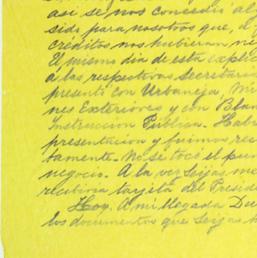 así se nos consedió al
sido para nosotros que, a
créditos nos hubieran ni
El mismo día de esta explic
á las respectivas secretarias
presenté con Urbaneja, Mi
nes Exteriores y con Blan
Instrucción Pública. Hab
presentación y fuimos res
tamente. No se tocó el pun
negocio. A la vez Seijas me
recibiría tarjeta del Presid
Hoy. A mi llegada Du
los documentos que Seijas h